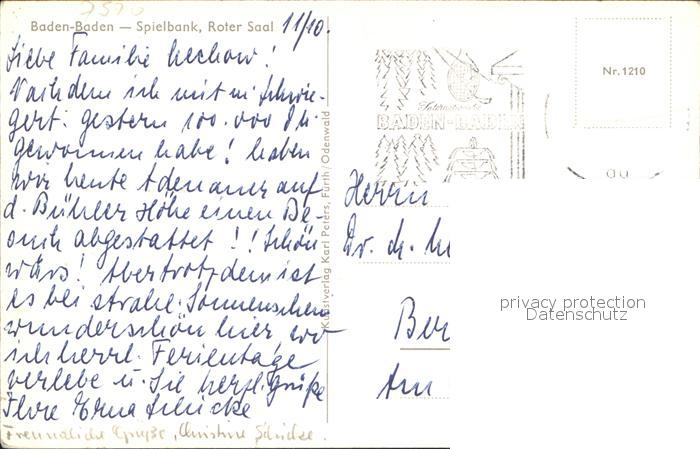 Baden-Baden — Spielbank, Roter Saal
11/10.
Liebe Familie Lechow!
Nachdem ich mit m. Schwie-
gert. gestern 100.000 DM.
gewonnen habe! haben
wir heute Adenauer auf
d. Bühler Höhe einen Be-
such abgestattet!! Schön
wärs! Aber trotzdem ist
es bei strahl. Sonnenschein
wunderschön hier, wo
ich herrl. Ferientage
verlebe u. Sie herzl. grüße
Ihre Erna Schicke
Freundliche Grüße, Christine Schicke.
Kunstverlag Karl Peters, Fürth/Odenwald
BADEN-BADEN
Nr. 1210
Herrn
Dr. H.
Ber
Am
privacy protection
Datenschutz